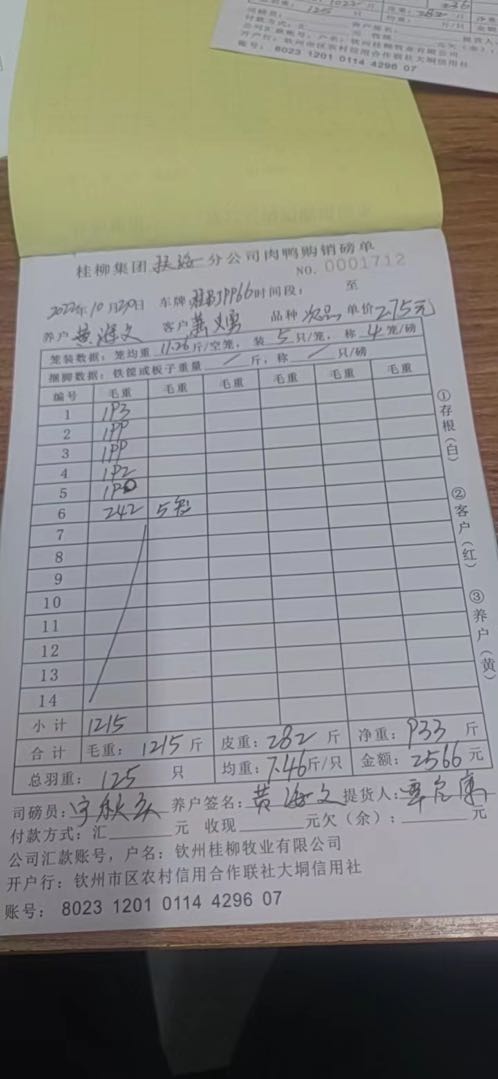 账号: 8023 1201 0114 4296 07
桂柳集团 分公司肉鸭购销磅单
NO. 0001712
2022年10月30日 车牌 时间段: 至
养户 黄海文 客户 品种 次品 单价 2.75元
笼装数据: 笼均重 11.26 斤/空笼, 装 5 只/笼, 称 4 笼/磅
捆脚数据: 铁筐或板子重量 / 斤, 称 / 只/磅
编号 毛重 毛重 毛重 毛重 毛重 毛重
1 193
2 199
3 199
4 192
5 190
6 242 5笼
7
8
9
10
11
12
13
14
小计 1215
合计 毛重: 1215 斤 皮重: 282 斤 净重: 933 斤
总羽重: 125 只 均重: 7.46斤/只 金额: 2566 元
司磅员: 养户签名: 黄海文 提货人:
付款方式: 汇 元 收现 元欠(余): 元
公司汇款账号, 户名: 钦州桂柳牧业有限公司
开户行: 钦州市区农村信用合作联社大垌信用社
账号: 8023 1201 0114 4296 07
①存根(白) ②客户(红) ③养户(黄)